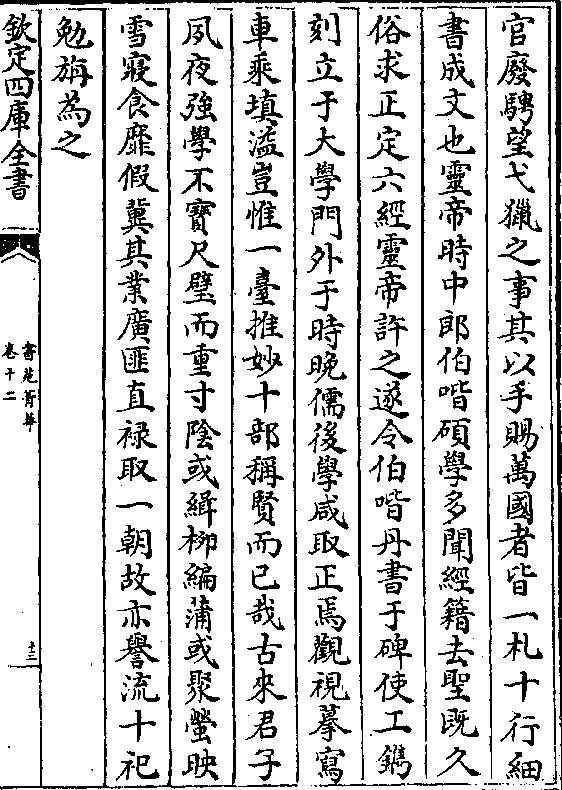 官廢騁望弋獵之事其以手賜萬國者皆一札十行細
書成文也靈帝時中郎伯喈碩學多聞經籍去聖既久
俗求正定六經靈帝許之遂令伯喈丹書于碑使工鐫
刻立于大學門外于時晚儒後學咸取正焉觀視摹寫
車乘填溢豈惟一臺推妙十部稱賢而已哉古來君子
夙夜強學不寶尺璧而重寸陰或緝柳編蒲或聚螢映
雪寢食靡假冀其業廣匪直祿取一朝故亦譽流十祀
勉旃為之
欽定四庫全書
書苑菁華
卷十二
十三